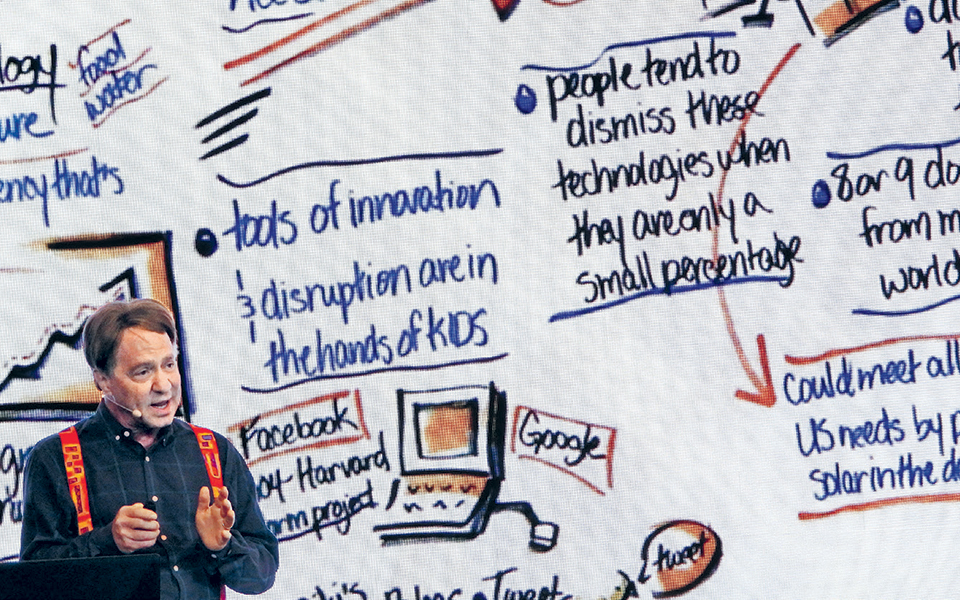 food
water
people tend to
dismiss these
technologies when
they are only a
small percentage
tools of innovation
& disruption are in
the hands of KIDS
8 or 9 do
from m
world
Facebook
04-Harvard
rm project
Google
could meet all
US needs by p
solar in the de
tweet
Tweet